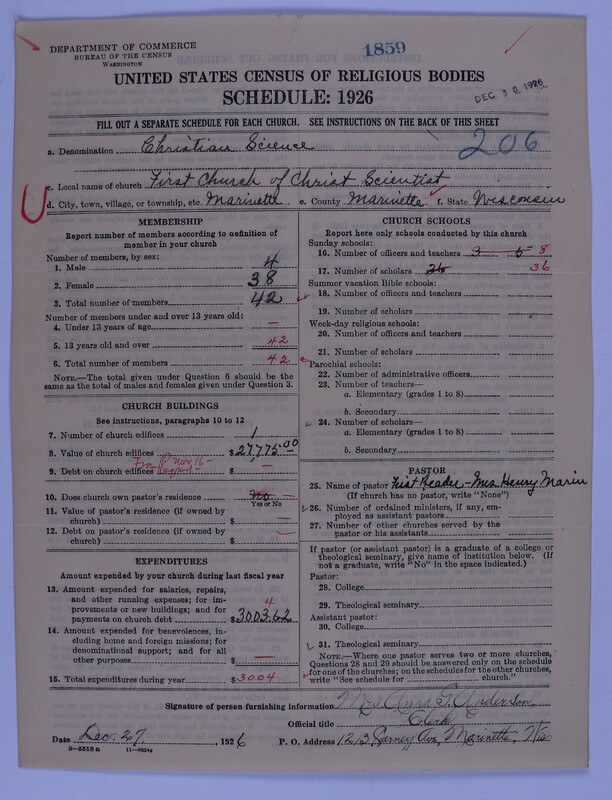 DEPARTMENT OF COMMERCE
BUREAU OF THE CENSUS
WASHINGTON
1859
UNITED STATES CENSUS OF RELIGIOUS BODIES
SCHEDULE: 1926
DEC 30 1926
FILL OUT A SEPARATE SCHEDULE FOR EACH CHURCH. SEE INSTRUCTIONS ON THE BACK OF THIS SHEET
a. Denomination Christian Science
206
c. Local name of church First Church of Christ Scientist
d. City, town, village, or township, etc. Marinette e. County Marinette f. State Wisconsin
MEMBERSHIP
Report number of members according to definition of member in your church
Number of members, by sex:
1. Male 4
2. Female 38
3. Total number of members 42
Number of members under and over 13 years old:
4. Under 13 years of age –
5. 13 years old and over 42
6. Total number of members 42
NOTE.—The total given under Question 6 should be the same as the total of males and females given under Question 3.
CHURCH BUILDINGS
See instructions, paragraphs 10 to 12
7. Number of church edifices 1
8. Value of church edifices $27,775.00
9. Debt on church edifices $ –
10. Does church own pastor's residence No –
Yes or No
11. Value of pastor's residence (if owned by church) $ –
12. Debt on pastor's residence (if owned by church) $ –
EXPENDITURES
Amount expended by your church during last fiscal year
13. Amount expended for salaries, repairs, and other running expenses; for improvements or new buildings; and for payments on church debt $3003.62 4
14. Amount expended for benevolences, including home and foreign missions; for denominational support; and for all other purposes $ –
15. Total expenditures during year $3004
CHURCH SCHOOLS
Report here only schools conducted by this church
Sunday schools:
16. Number of officers and teachers 3 5 8
17. Number of scholars 36 36
Summer vacation Bible schools:
18. Number of officers and teachers
19. Number of scholars
Week-day religious schools:
20. Number of officers and teachers
21. Number of scholars
Parochial schools:
22. Number of administrative officers
23. Number of teachers—
a. Elementary (grades 1 to 8)
b. Secondary
24. Number of scholars—
a. Elementary (grades 1 to 8)
b. Secondary
PASTOR
25. Name of pastor First Reader - Mrs Henry Marin
(If church has no pastor, write "None")
26. Number of ordained ministers, if any, employed as assistant pastors
27. Number of other churches served by the pastor or his assistants
If pastor (or assistant pastor) is a graduate of a college or theological seminary, give name of institution below. (If not a graduate, write "No" in the space indicated.)
Pastor:
28. College
29. Theological seminary
Assistant pastor:
30. College
31. Theological seminary
NOTE.—Where one pastor serves two or more churches, Questions 28 and 29 should be answered only on the schedule for one of the churches; on the schedules for the other churches, write "See schedule for church."
Signature of person furnishing information Mrs Anderson
Official title Clerk
Date Dec. 27, 1926 P. O. Address 1213 Ave, Marinette, Wis
8—5518 a 11—9034